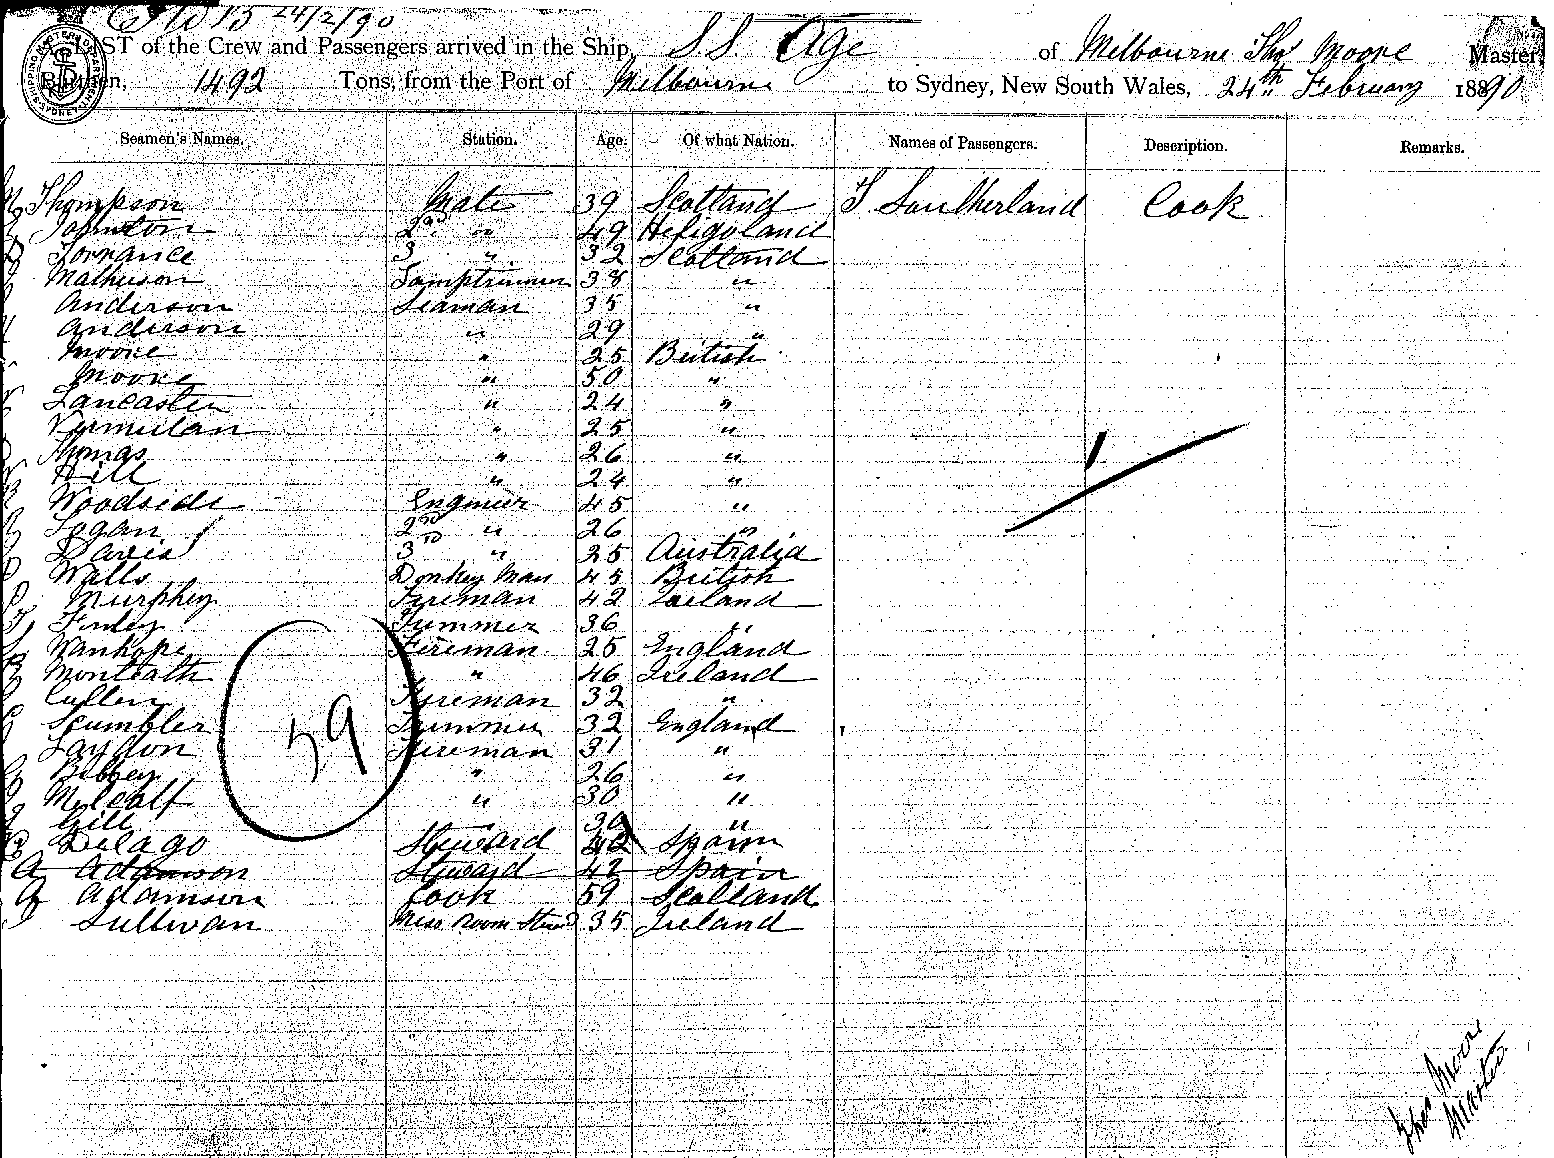 24/2/90
A LIST of the Crew and Passengers arrived in the Ship, S.S. Age of Melbourne Thos Moore Master,
Burthen, 1492 Tons, from the Port of Melbourne to Sydney, New South Wales, 24th February 1890
Seamen's Names. Station. Age. Of what Nation. Names of Passengers. Description. Remarks.
Thompson Mate 39 Scotland T Southerland Cook
Johnston 2nd " 49 Heligoland
Torrance 3 " 32 Scotland
Matheson Lamptrimmer 38 "
Anderson Seaman 35 "
Anderson " 29 "
Moore " 25 British
Moore " 50 "
Lancaster " 24 "
Vermeulan " 25 "
Thomas " 26 "
Hill " 24 "
Woodside Engineer 45 "
Logan 2nd " 26 "
Davis 3rd " 25 Australia
Walls Donkey Man 45 British
Murphey Fireman 42 Ireland
Finley Trimmer 36 "
Wanhope Fireman 25 England
Monteath " 46 Ireland
Cullen Fireman 32 "
Scumbler Trimmer 32 England
Laydon Fireman 31 "
Bibbey " 26 "
Metcalf " 30 "
Gill " 30 "
Delago Steward 42 Spain
A Adamson Steward 42 Spain
A Adamson Cook 59 Scotland
Sullivan Mess Room Steward 35 Ireland
Thos Moore
Master